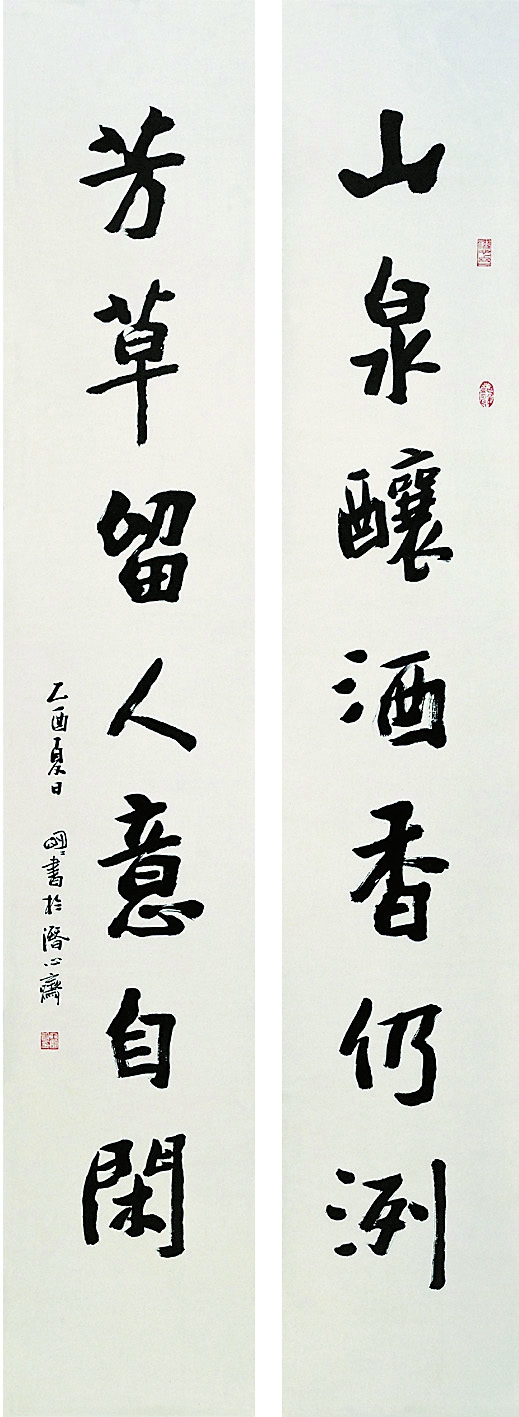 山泉釀酒香仍洌
芳草留人意自閑
乙酉夏日 書於潛心齋